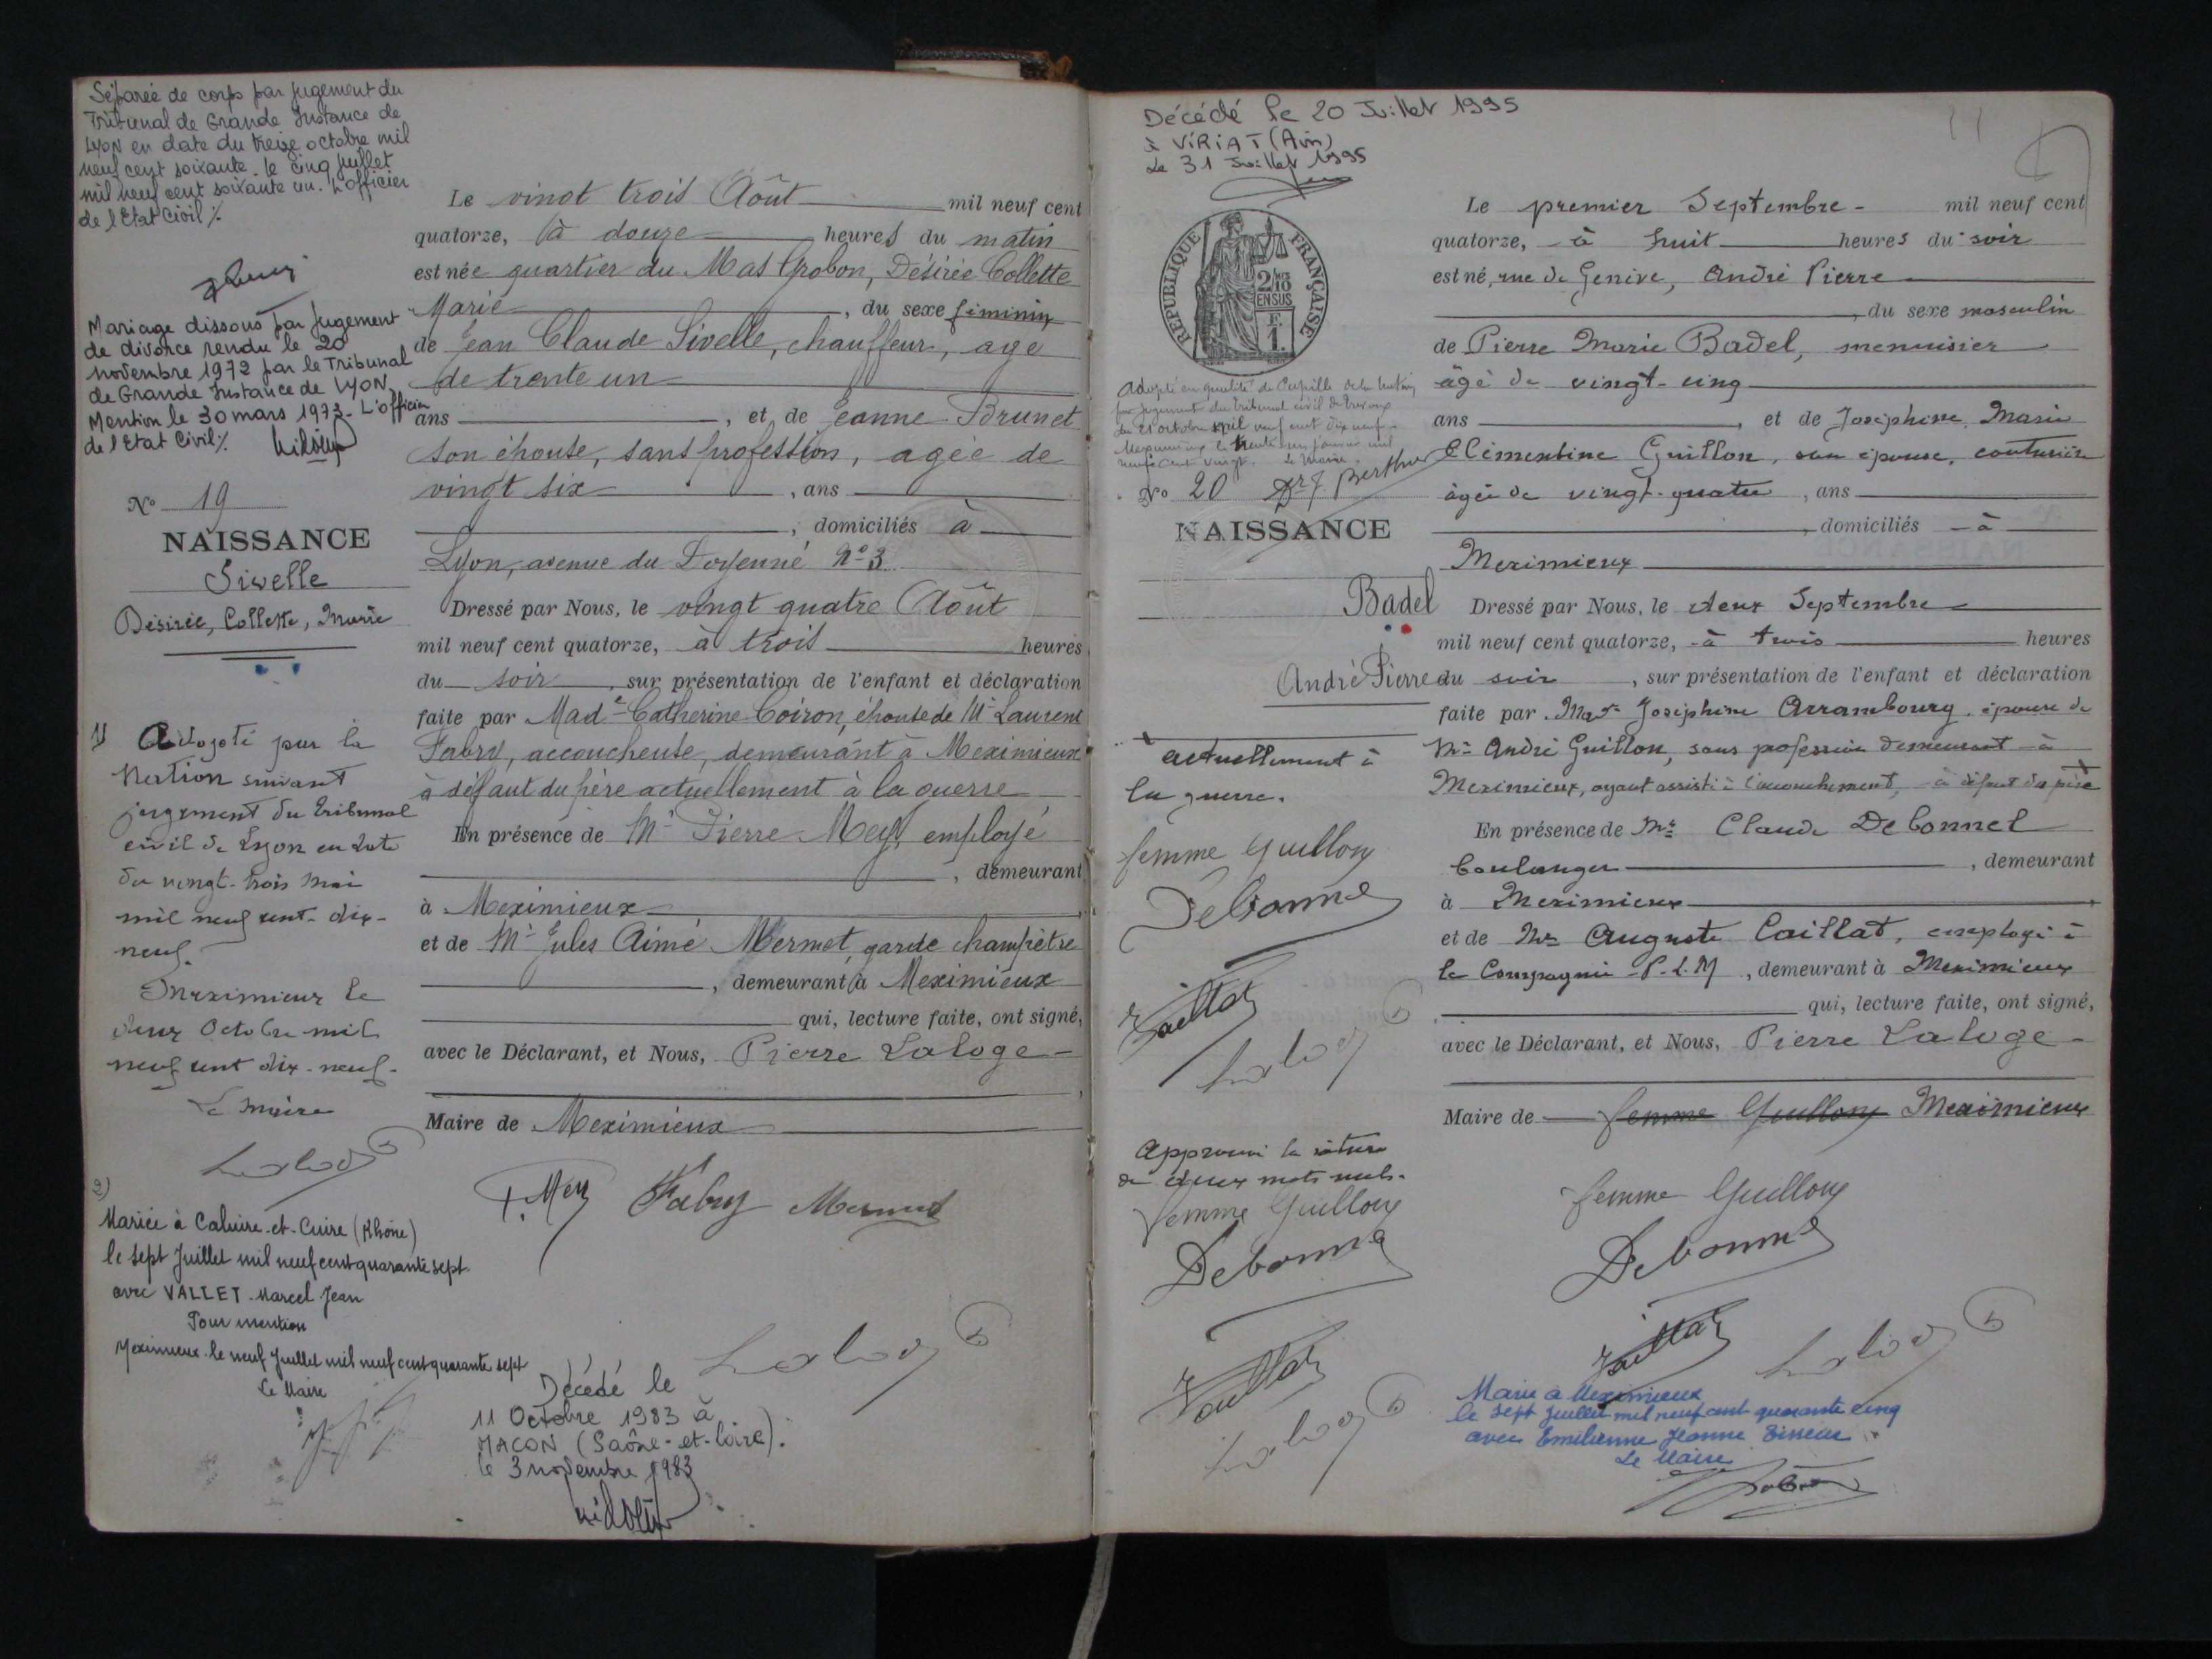 Séparée de corps par jugement du
Tribunal de Grande Instance de
Lyon en date du treize octobre mil
neuf cent soixante. le cinq juillet
mil neuf cent soixante un. L'officier
de l'Etat Civil ./.
Mariage dissous par jugement
de divorce rendu le 20
novembre 1972 par le Tribunal
de Grande Instance de LYON
Mention le 30 mars 1973. L'officier
de l'Etat Civil ./.
No 19
NAISSANCE
Sivelle
Désirée, Collette, Marie
1) Adopté par la
Nation suivant
jugement du tribunal
civil de Lyon en date
du vingt-trois Mai
mil neuf cent dix-
neuf.
Meximieux le
deux Octobre mil
neuf cent dix-neuf-
Le Maire
2)
Mariée à Caluire-et-Cuire (Rhône)
le sept Juillet mil neuf cent quarante sept
avec VALLET Marcel Jean
Pour mention
Meximieux le neuf Juillet mil neuf cent quarante sept
Le Maire
Le vingt trois Août mil neuf cent
quatorze, à douze heures du matin
est née quartier du Mas Grobon, Désirée Collette
Marie, du sexe féminin
de Jean Claude Sivelle, chauffeur, age
de trente un
ans, et de Jeanne Brunet
son épouse, sans profession, agée de
vingt six, ans
, domiciliés à
Lyon, avenue du Doyenné No 3
Dressé par Nous, le vingt quatre Août
mil neuf cent quatorze, à trois heures
du soir, sur présentation de l'enfant et déclaration
faite par Made Catherine Coiron, épouse de Mr Laurent
Fabry, accoucheuse, demeurant à Meximieux
à défaut du père actuellement à la guerre
En présence de Mr Pierre Mey, employé
, demeurant
à Meximieux
et de Mr Jules Aimé Mermet, garde champêtre
, demeurant à Meximieux
qui, lecture faite, ont signé,
avec le Déclarant, et Nous, Pierre Laloge -
Maire de Meximieux
P. Mey Fabry Mermet
Décédé le
11 Octobre 1983 à
MACON (Saône-et-Loire).
le 3 novembre 1983
Décédé le 20 Juillet 1995
à VIRIAT (Ain)
Le 31 Juillet 1995
REPUBLIQUE FRANÇAISE
2/10
EN SUS
F.
1.
Adopté en qualité de Pupille de la Nation
par jugement du tribunal civil de Trévoux
du 21 octobre mil neuf cent dix neuf -
Meximieux le trente un janvier mil
neuf cent vingt. Le Maire,
Berthier
No 20
NAISSANCE
Badel
André Pierre
actuellement à
la guerre.
femme Guillon
Debonnel
Caillat
Approuvé la rature
de deux mots nuls.
femme Guillon
Debonnel
Caillat
Le premier Septembre - mil neuf cent
quatorze, - à huit heures du soir
est né, rue de Genève, André Pierre
, du sexe masculin
de Pierre Marie Badel, menuisier
âgé de vingt-cinq
ans, et de Joséphine Marie
Clémentine Guillon, son épouse, couturière
âgée de vingt-quatre, ans
, domiciliés - à
Meximieux
Dressé par Nous, le deux Septembre
mil neuf cent quatorze, - à trois heures
du soir, sur présentation de l'enfant et déclaration
faite par Made Joséphine Arrambourg, épouse de
Mr André Guillon, sans profession demeurant - à
Meximieux, ayant assisté à l'accouchement, - à défaut du père
En présence de Mr Claude Debonnel
boulanger, demeurant
à Meximieux
et de Mr Auguste Caillat, employé à
la Compagnie P.L.M, demeurant à Meximieux
qui, lecture faite, ont signé,
avec le Déclarant, et Nous, Pierre Laloge -
Maire de femme Guillon Meximieux
femme Guillon
Debonnel
Caillat
Marié à Meximieux
le sept juillet mil neuf cent quarante cinq
avec Emilienne Jeanne
Le Maire